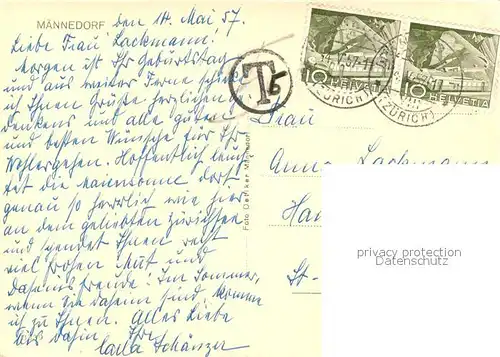 MÄNNEDORF den 14. Mai 57.
Liebe Frau Lackmann!
Morgen ist Ihr Geburtstag
und aus weiter Ferne schicke
ich Ihnen Grüße herzlichen
Gedenkens und alle guten
und besten Wünsche für Ihr
Wohlergehen. Hoffentlich leuch-
tet die Maiensonne dort
genau so herrlich wie hier
an dem geliebten Zürichsee
und spendet Ihnen recht
viel frohen Mut und
Daseinsfreude! Im Sommer,
wenn Sie daheim sind, komme
ich zu Ihnen. Alles Liebe
bis dahin Ihre
Carla Schänzer
T 5
10 HELVETIA
10 HELVETIA
14.V.57-11
(ZÜRICH)
(ZÜRICH)
Foto Detiker Männedorf
Frau
Anna Lackmann
Han
St-
privacy protection
Datenschutz